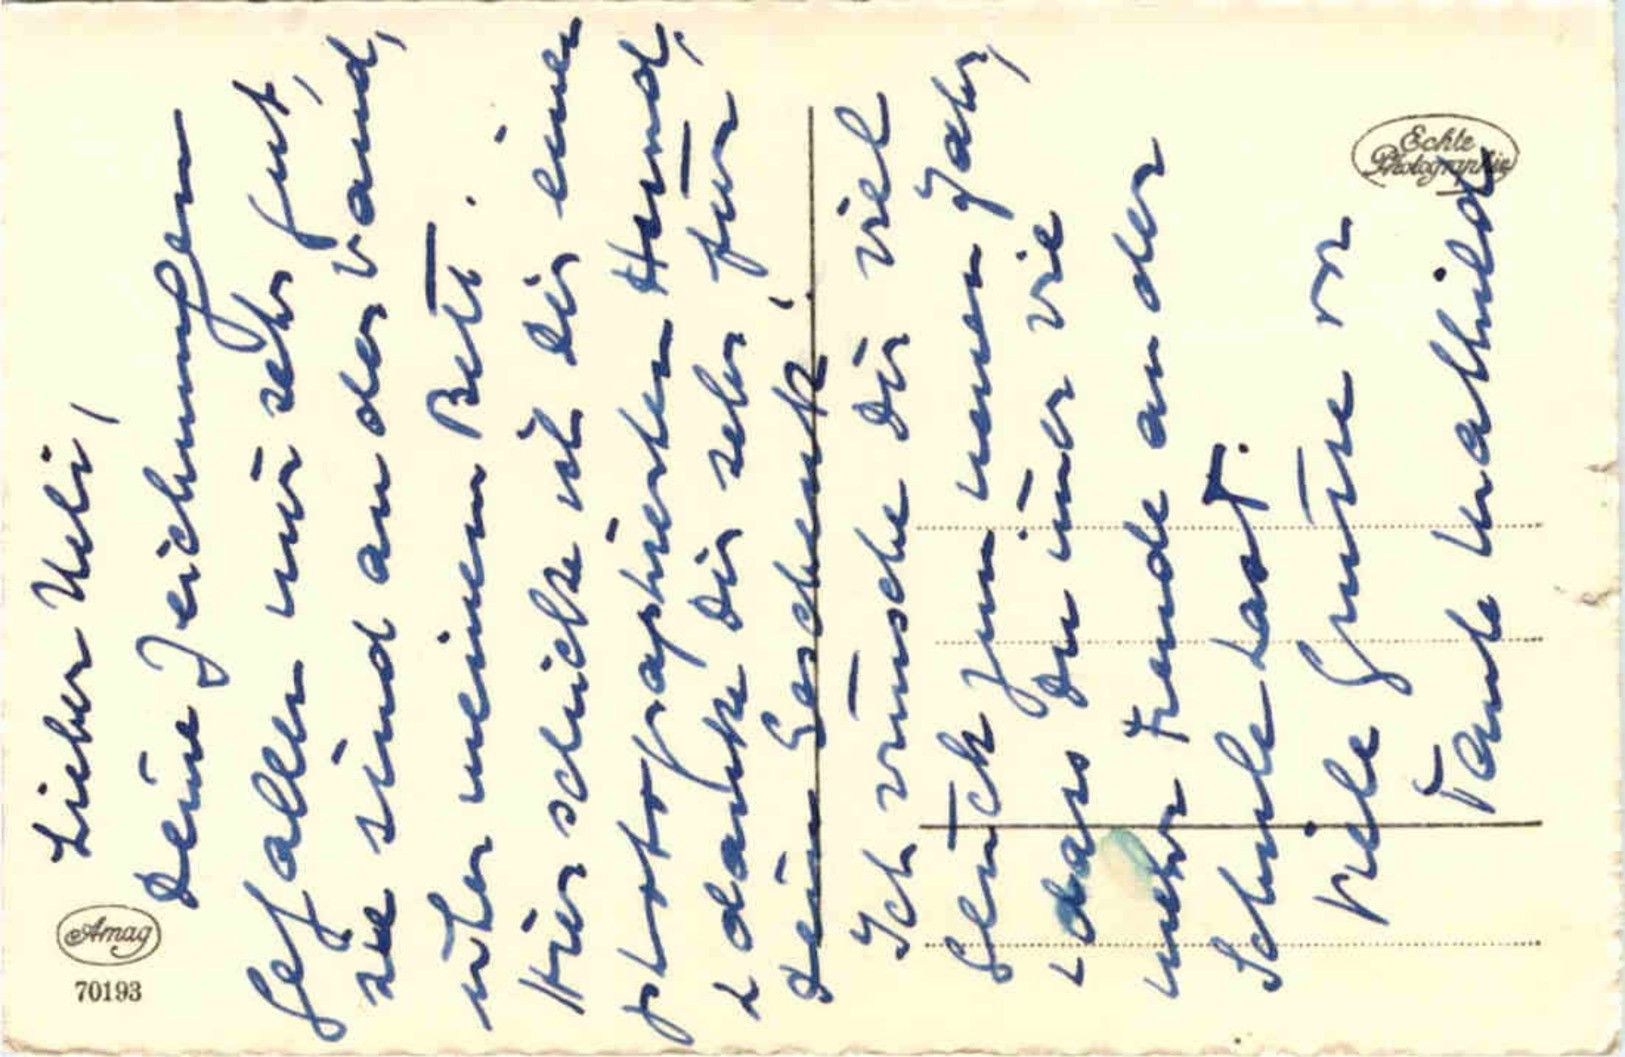 Lieber Ueli,
Deine Zeichnungen
gefallen mir sehr gut,
sie sind an der Wand,
über meinem Bett.
Hier schicke ich Dir einen
photographierten Hund,
& danke Dir sehr für
Dein Geschenk!
Ich wünsche Dir viel
Glück zum neuen Jahr,
& dass Du immer wie
mehr Freude an der
Schule hast.
Viele Grüsse von
Tante Mathilde
Amag
70193
Echte
Photographie